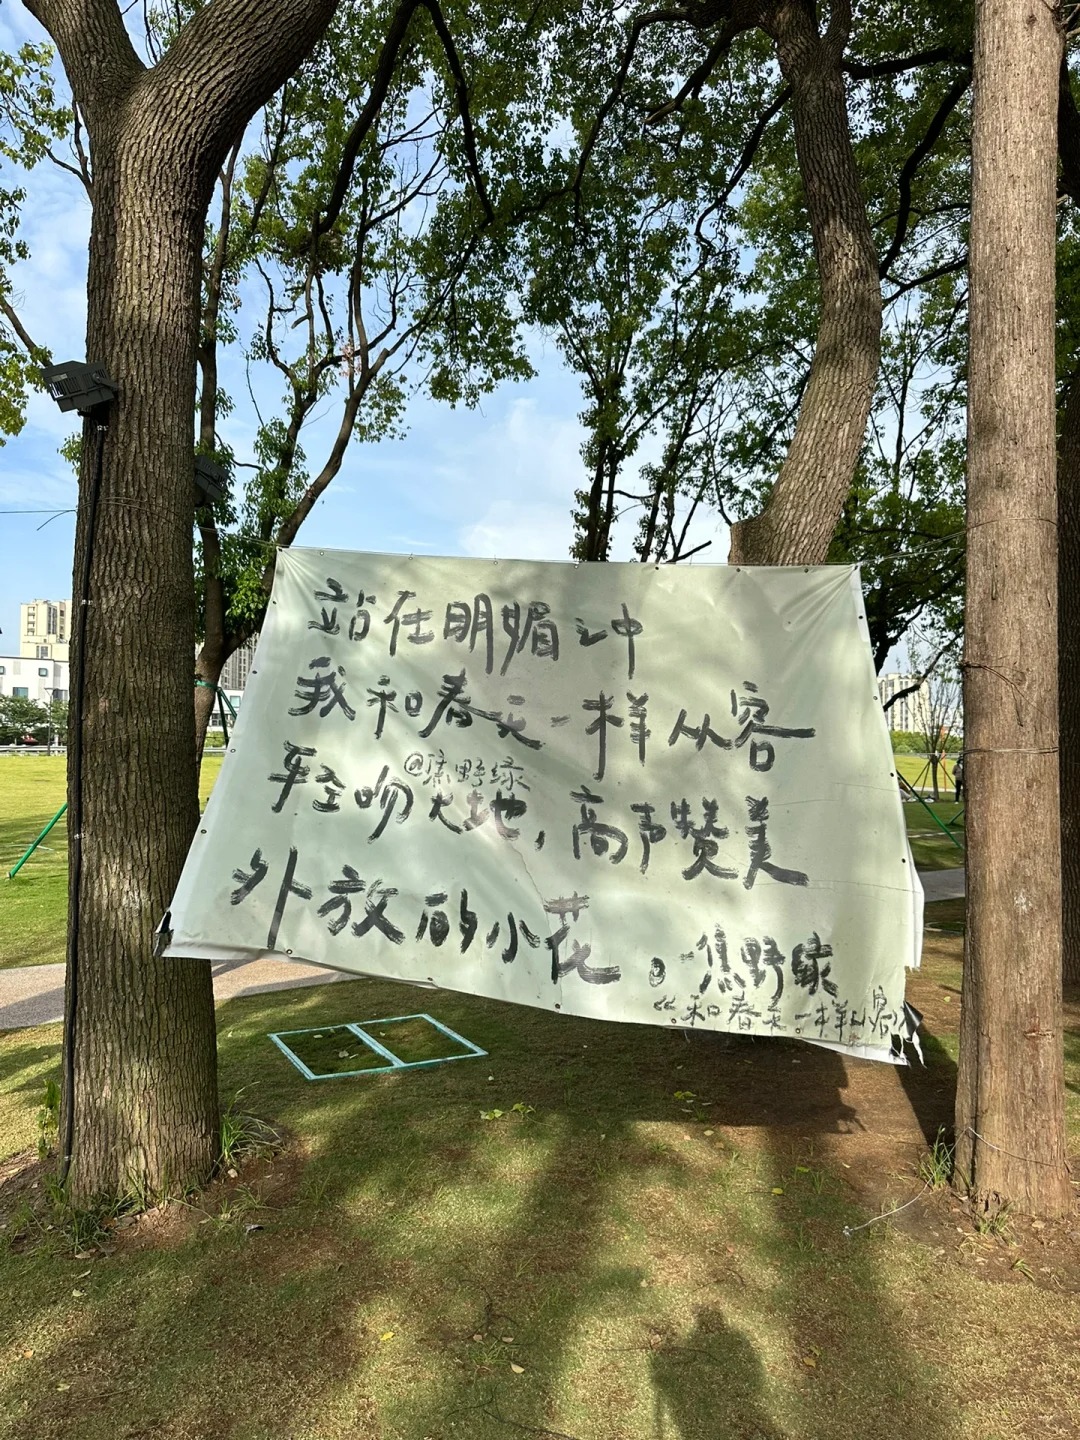 站在明媚之中
我和春天一样从容
@焦野绿
轻吻大地，高声赞美
外放的小花。-焦野绿
《和春天一样从容》